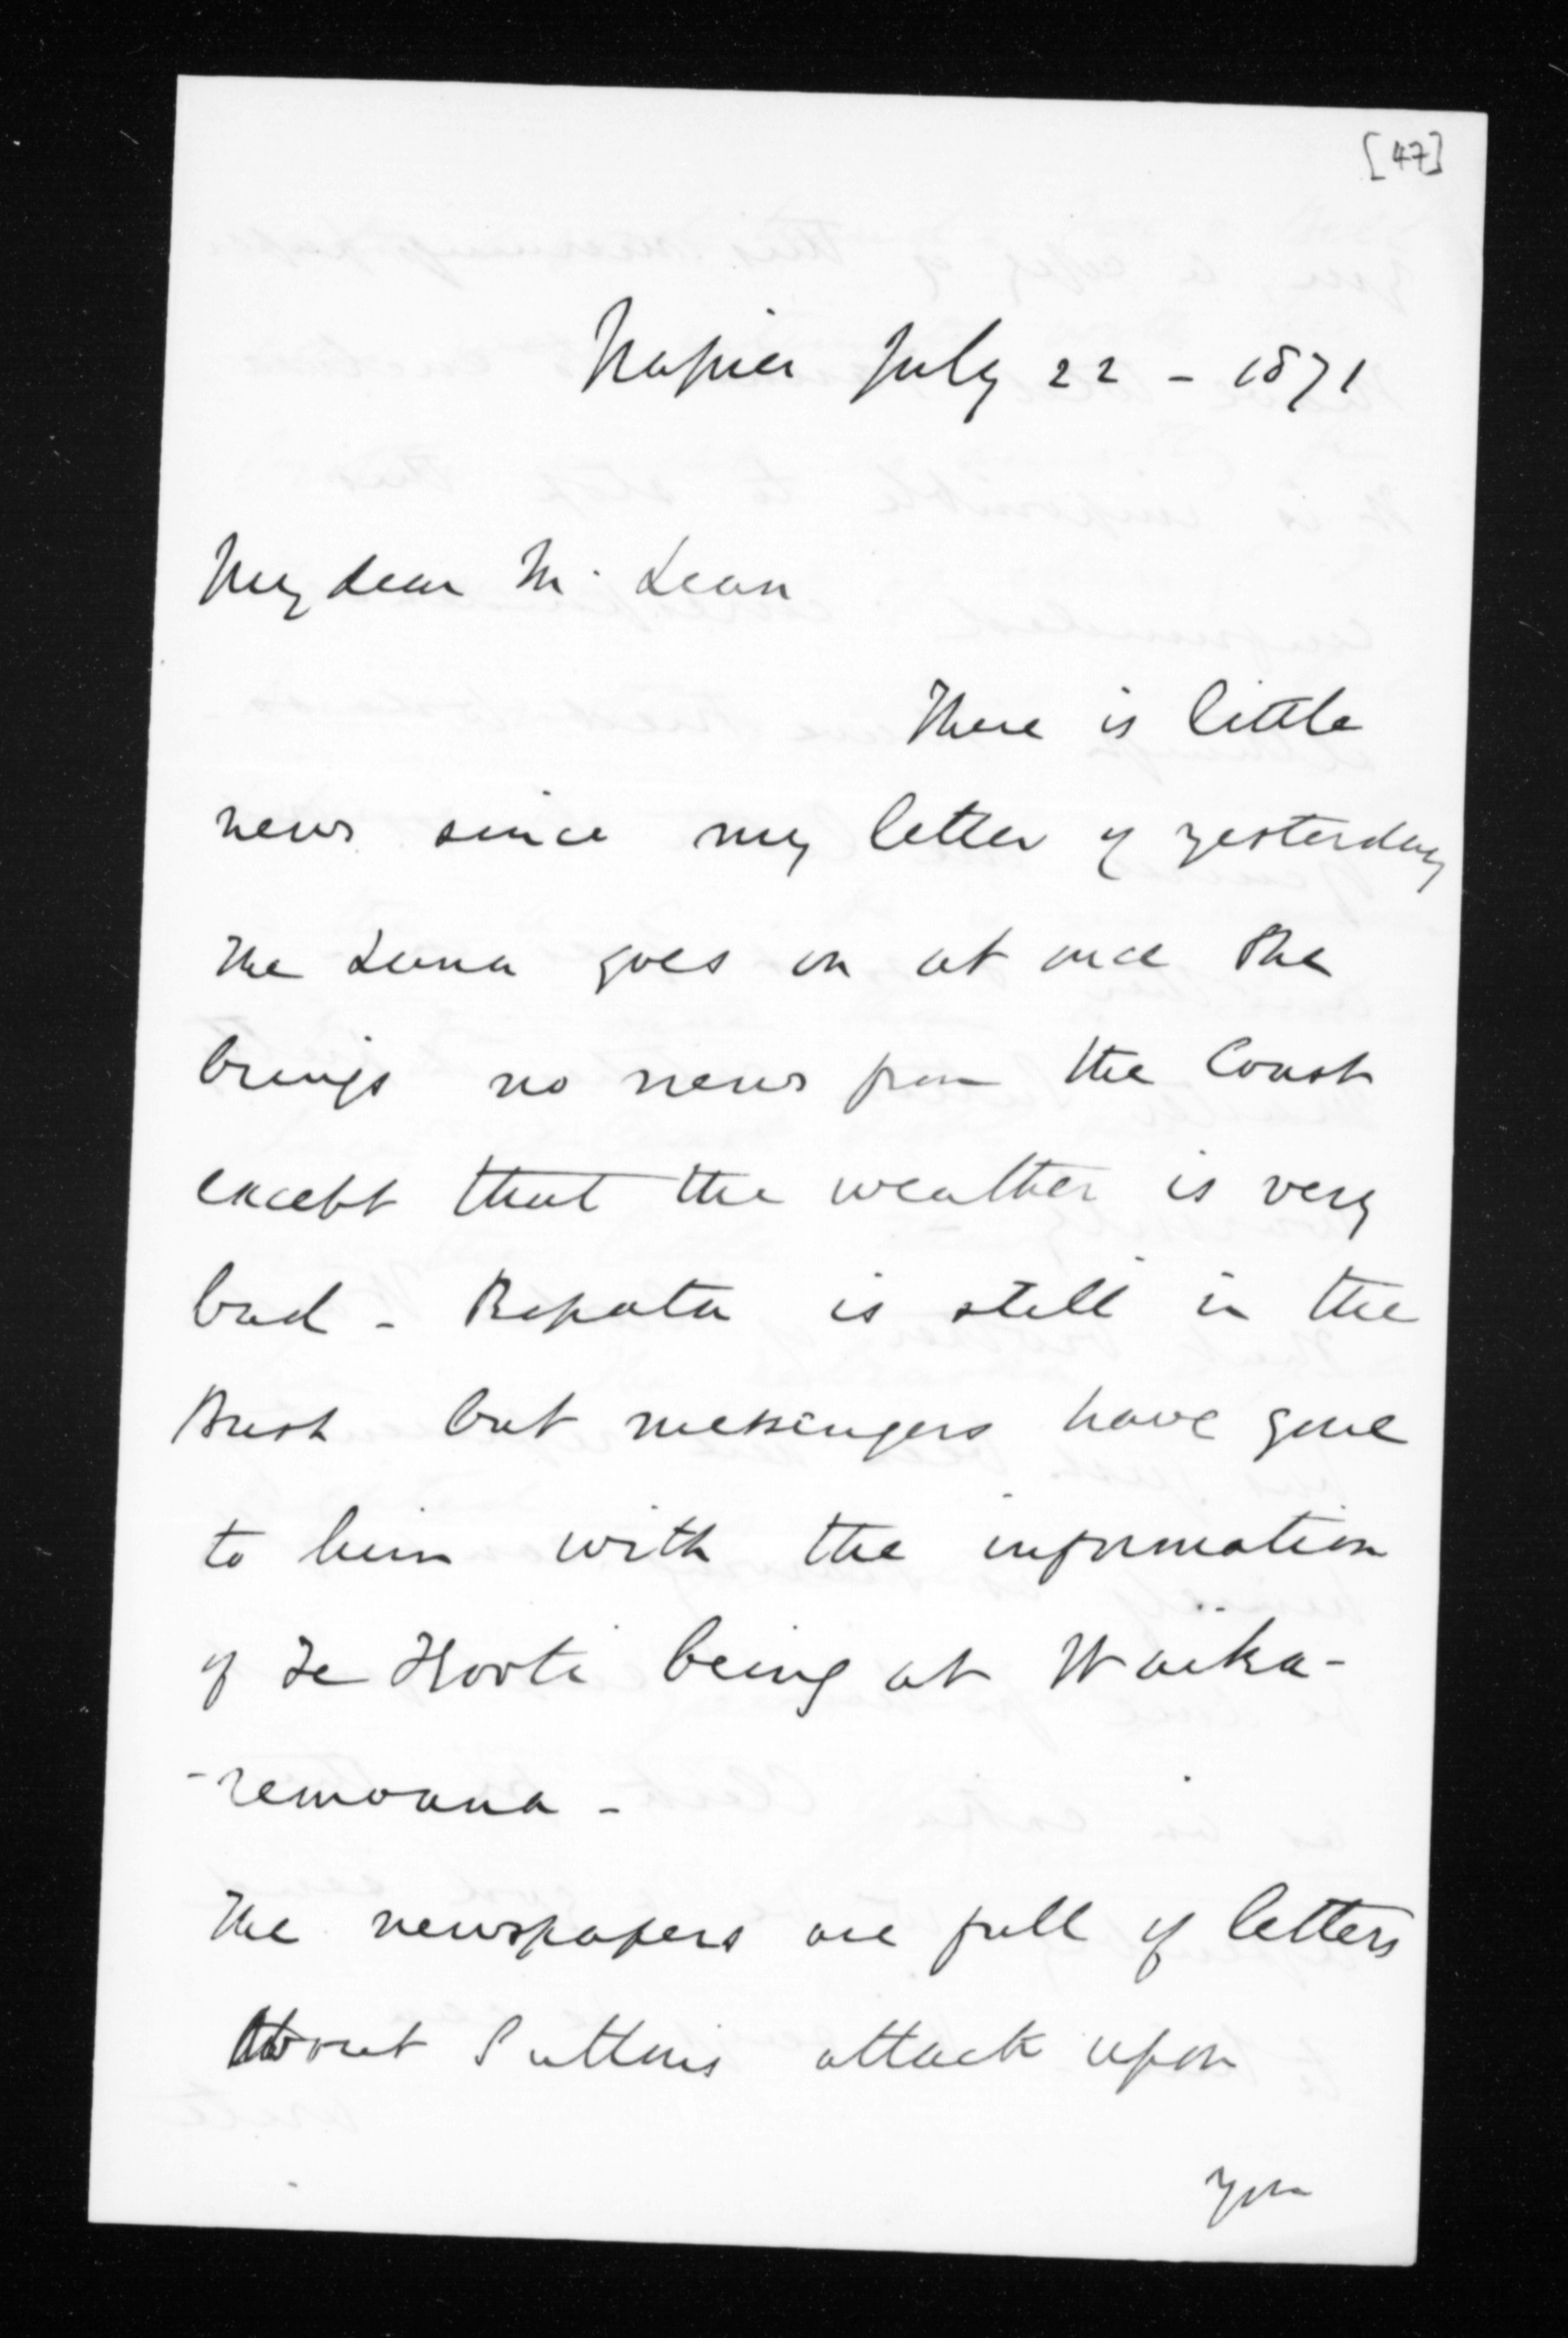 [47]
Napier July 22 - 1871
My dear Mc Lean
There is little
news since my letter of yesterday
The Luna goes on at once She
brings no news from the Coast
except that the weather is very
bad - Ropata is still in the
Bush but messengers have gone
to him with the information
of Te Kooti being at Waika-
-remoana -
The newspapers are full of letters
About Suttons attack upon
you